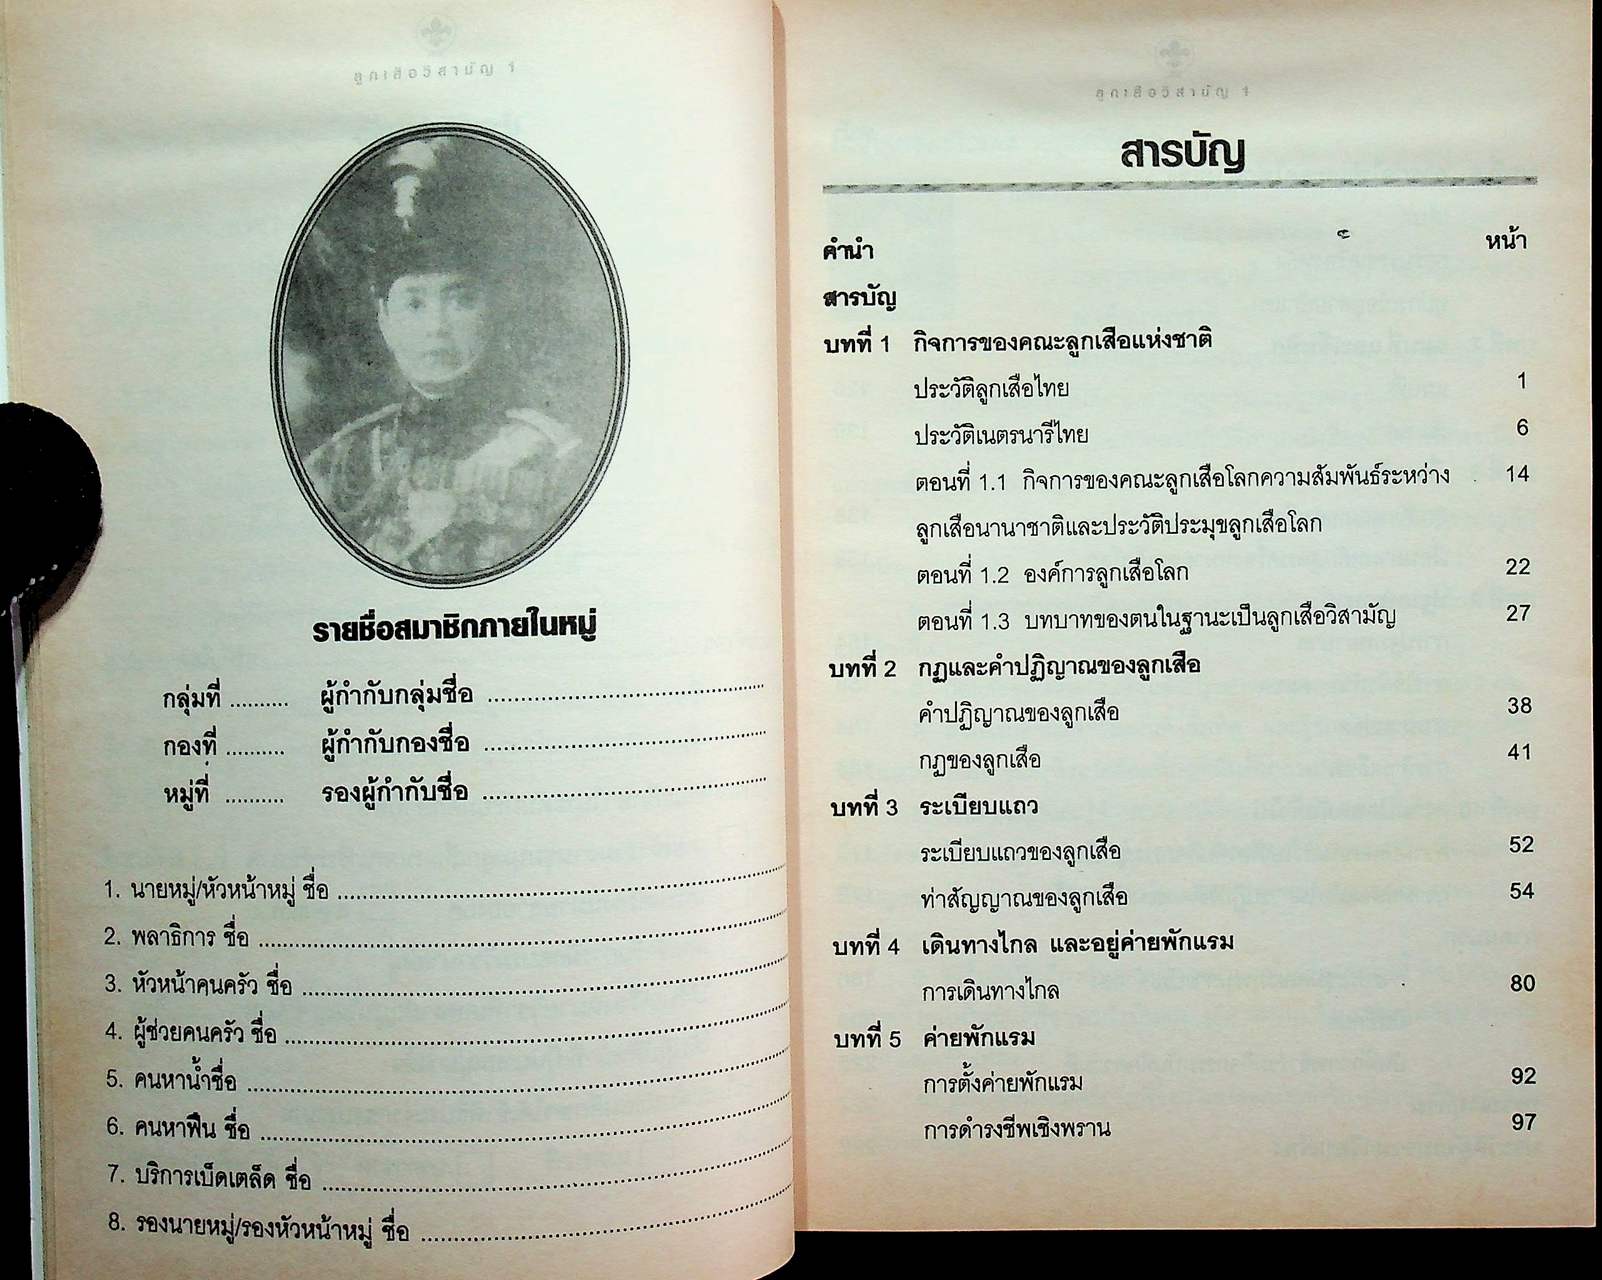 ลูกเสือวิสามัญ 1
รายชื่อสมาชิกภายในหมู่
กลุ่มที่ .......... ผู้กำกับกลุ่มชื่อ ..........................................
กองที่ .......... ผู้กำกับกองชื่อ ..........................................
หมู่ที่ .......... รองผู้กำกับชื่อ ..........................................
1. นายหมู่/หัวหน้าหมู่ ชื่อ ..........................................
2. พลาธิการ ชื่อ ..........................................
3. หัวหน้าคนครัว ชื่อ ..........................................
4. ผู้ช่วยคนครัว ชื่อ ..........................................
5. คนหาน้ำชื่อ ..........................................
6. คนหาฟืน ชื่อ ..........................................
7. บริการเบ็ดเตล็ด ชื่อ ..........................................
8. รองนายหมู่/รองหัวหน้าหมู่ ชื่อ ..........................................
ลูกเสือวิสามัญ 1
สารบัญ
คำนำ หน้า
สารบัญ
บทที่ 1 กิจการของคณะลูกเสือแห่งชาติ
ประวัติลูกเสือไทย 1
ประวัติเนตรนารีไทย 6
ตอนที่ 1.1 กิจการของคณะลูกเสือโลกความสัมพันธ์ระหว่าง 14
ลูกเสือนานาชาติและประวัติประมุขลูกเสือโลก
ตอนที่ 1.2 องค์การลูกเสือโลก 22
ตอนที่ 1.3 บทบาทของตนในฐานะเป็นลูกเสือวิสามัญ 27
บทที่ 2 กฏและคำปฏิญาณของลูกเสือ
คำปฏิญาณของลูกเสือ 38
กฏของลูกเสือ 41
บทที่ 3 ระเบียบแถว
ระเบียบแถวของลูกเสือ 52
ท่าสัญญาณของลูกเสือ 54
บทที่ 4 เดินทางไกล และอยู่ค่ายพักแรม
การเดินทางไกล 80
บทที่ 5 ค่ายพักแรม
การตั้งค่ายพักแรม 92
การดำรงชีพเชิงพราน 97